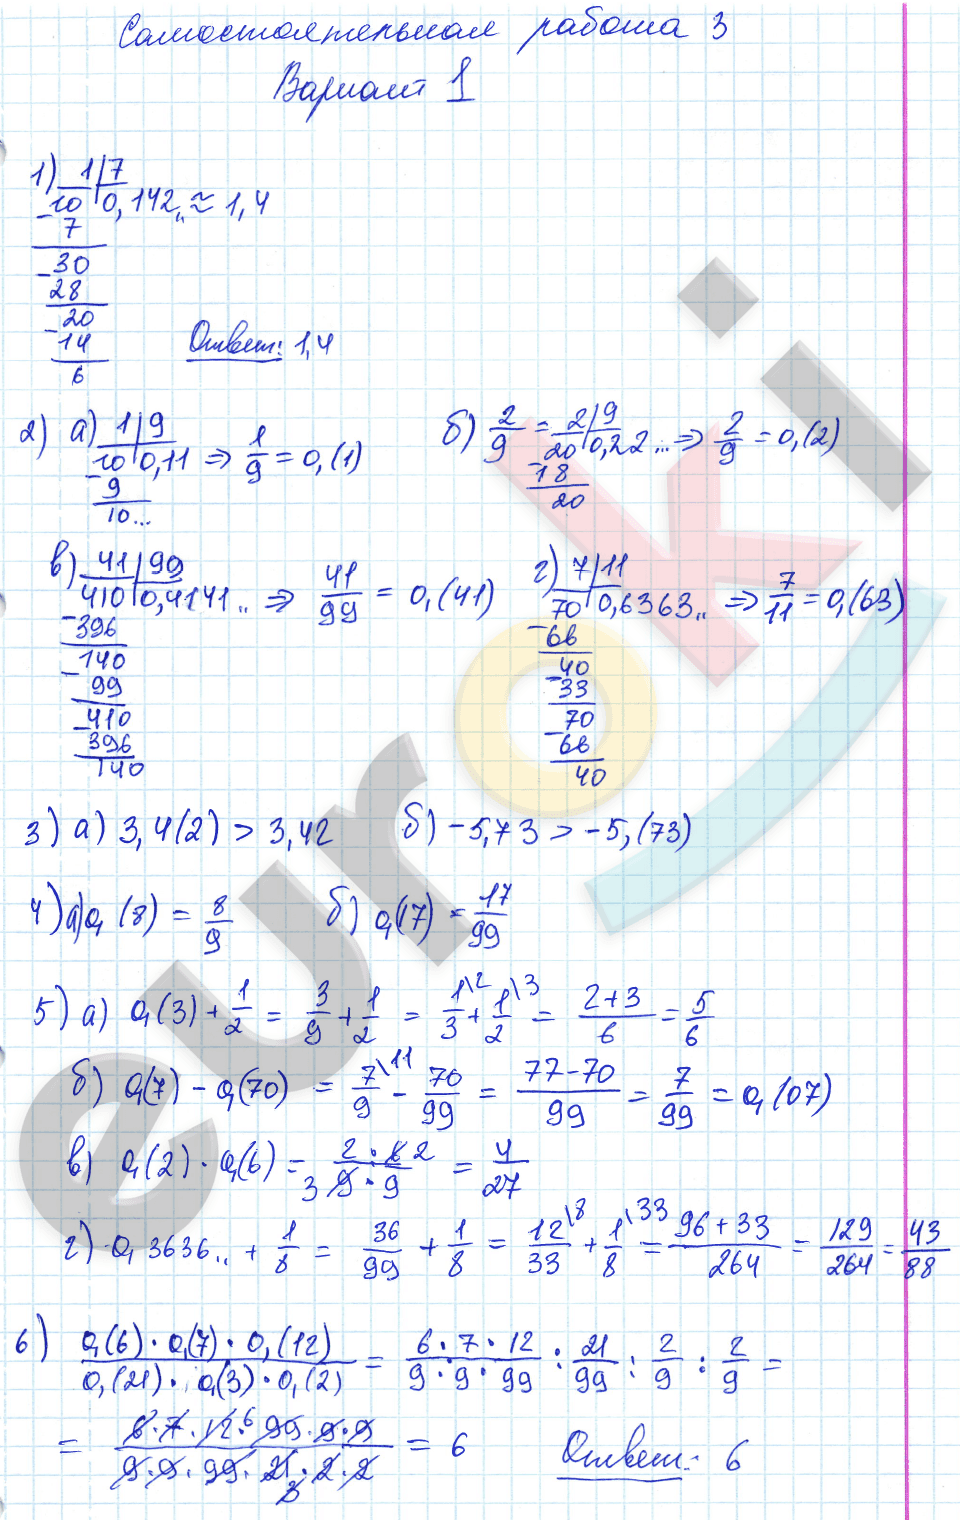 Самостоятельная работа 3
Вариант 1
1) 1 | 7
10 | 0,142.. ≈ 1,4
- 7
- 30
28
- 20
14
6
Ответ: 1,4
2) а) 1 | 9
10 | 0,11 ⇒ 1/9 = 0,(1)
- 9
10...
б) 2/9 = 2 | 9
20 | 0,22... ⇒ 2/9 = 0,(2)
- 18
20
в) 41 | 90
410 | 0,4141.. ⇒ 41/99 = 0,(41)
- 396
- 140
99
- 410
396
140
г) 7 | 11
70 | 0,6363.. ⇒ 7/11 = 0,(63)
- 66
- 40
33
- 70
66
40
3) а) 3,4(2) > 3,42 б) -5,73 > -5,(73)
4) а) 0,(8) = 8/9 б) 0,(17) = 17/99
5) а) 0,(3) + 1/2 = 3/9 + 1/2 = 1\2/3 + 1\3/2 = 2+3/6 = 5/6
б) 0,(7) - 0,(70) = 7\11/9 - 70/99 = 77-70/99 = 7/99 = 0,(07)
в) 0,(2) · 0,(6) = 2 · 6 2/3 9 · 9 = 4/27
г) 0,3636.. + 1/8 = 36/99 + 1/8 = 12\8/33 + 1\33/8 = 96+33/264 = 129/264 = 43/88
6) 0,(6) · 0,(7) · 0,(12)/0,(21) · 0,(3) · 0,(2) = 6 · 7 · 12/9 · 9 · 99 : 21/99 : 2/9 : 2/9 =
= 6 · 7 · 12 6 · 99 · 9 · 9/9 · 9 · 99 · 21 3 · 2 · 2 = 6 Ответ: 6
euroki